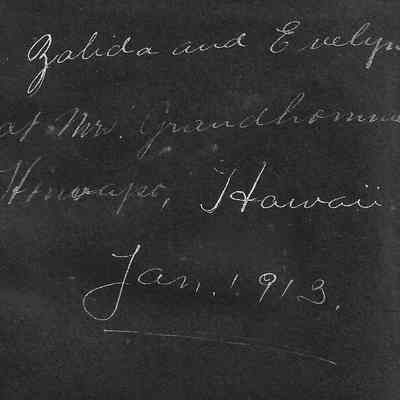 Zalida and Evelyn
at Mr. Grandhomme
Hawaii
Jan. 1913.